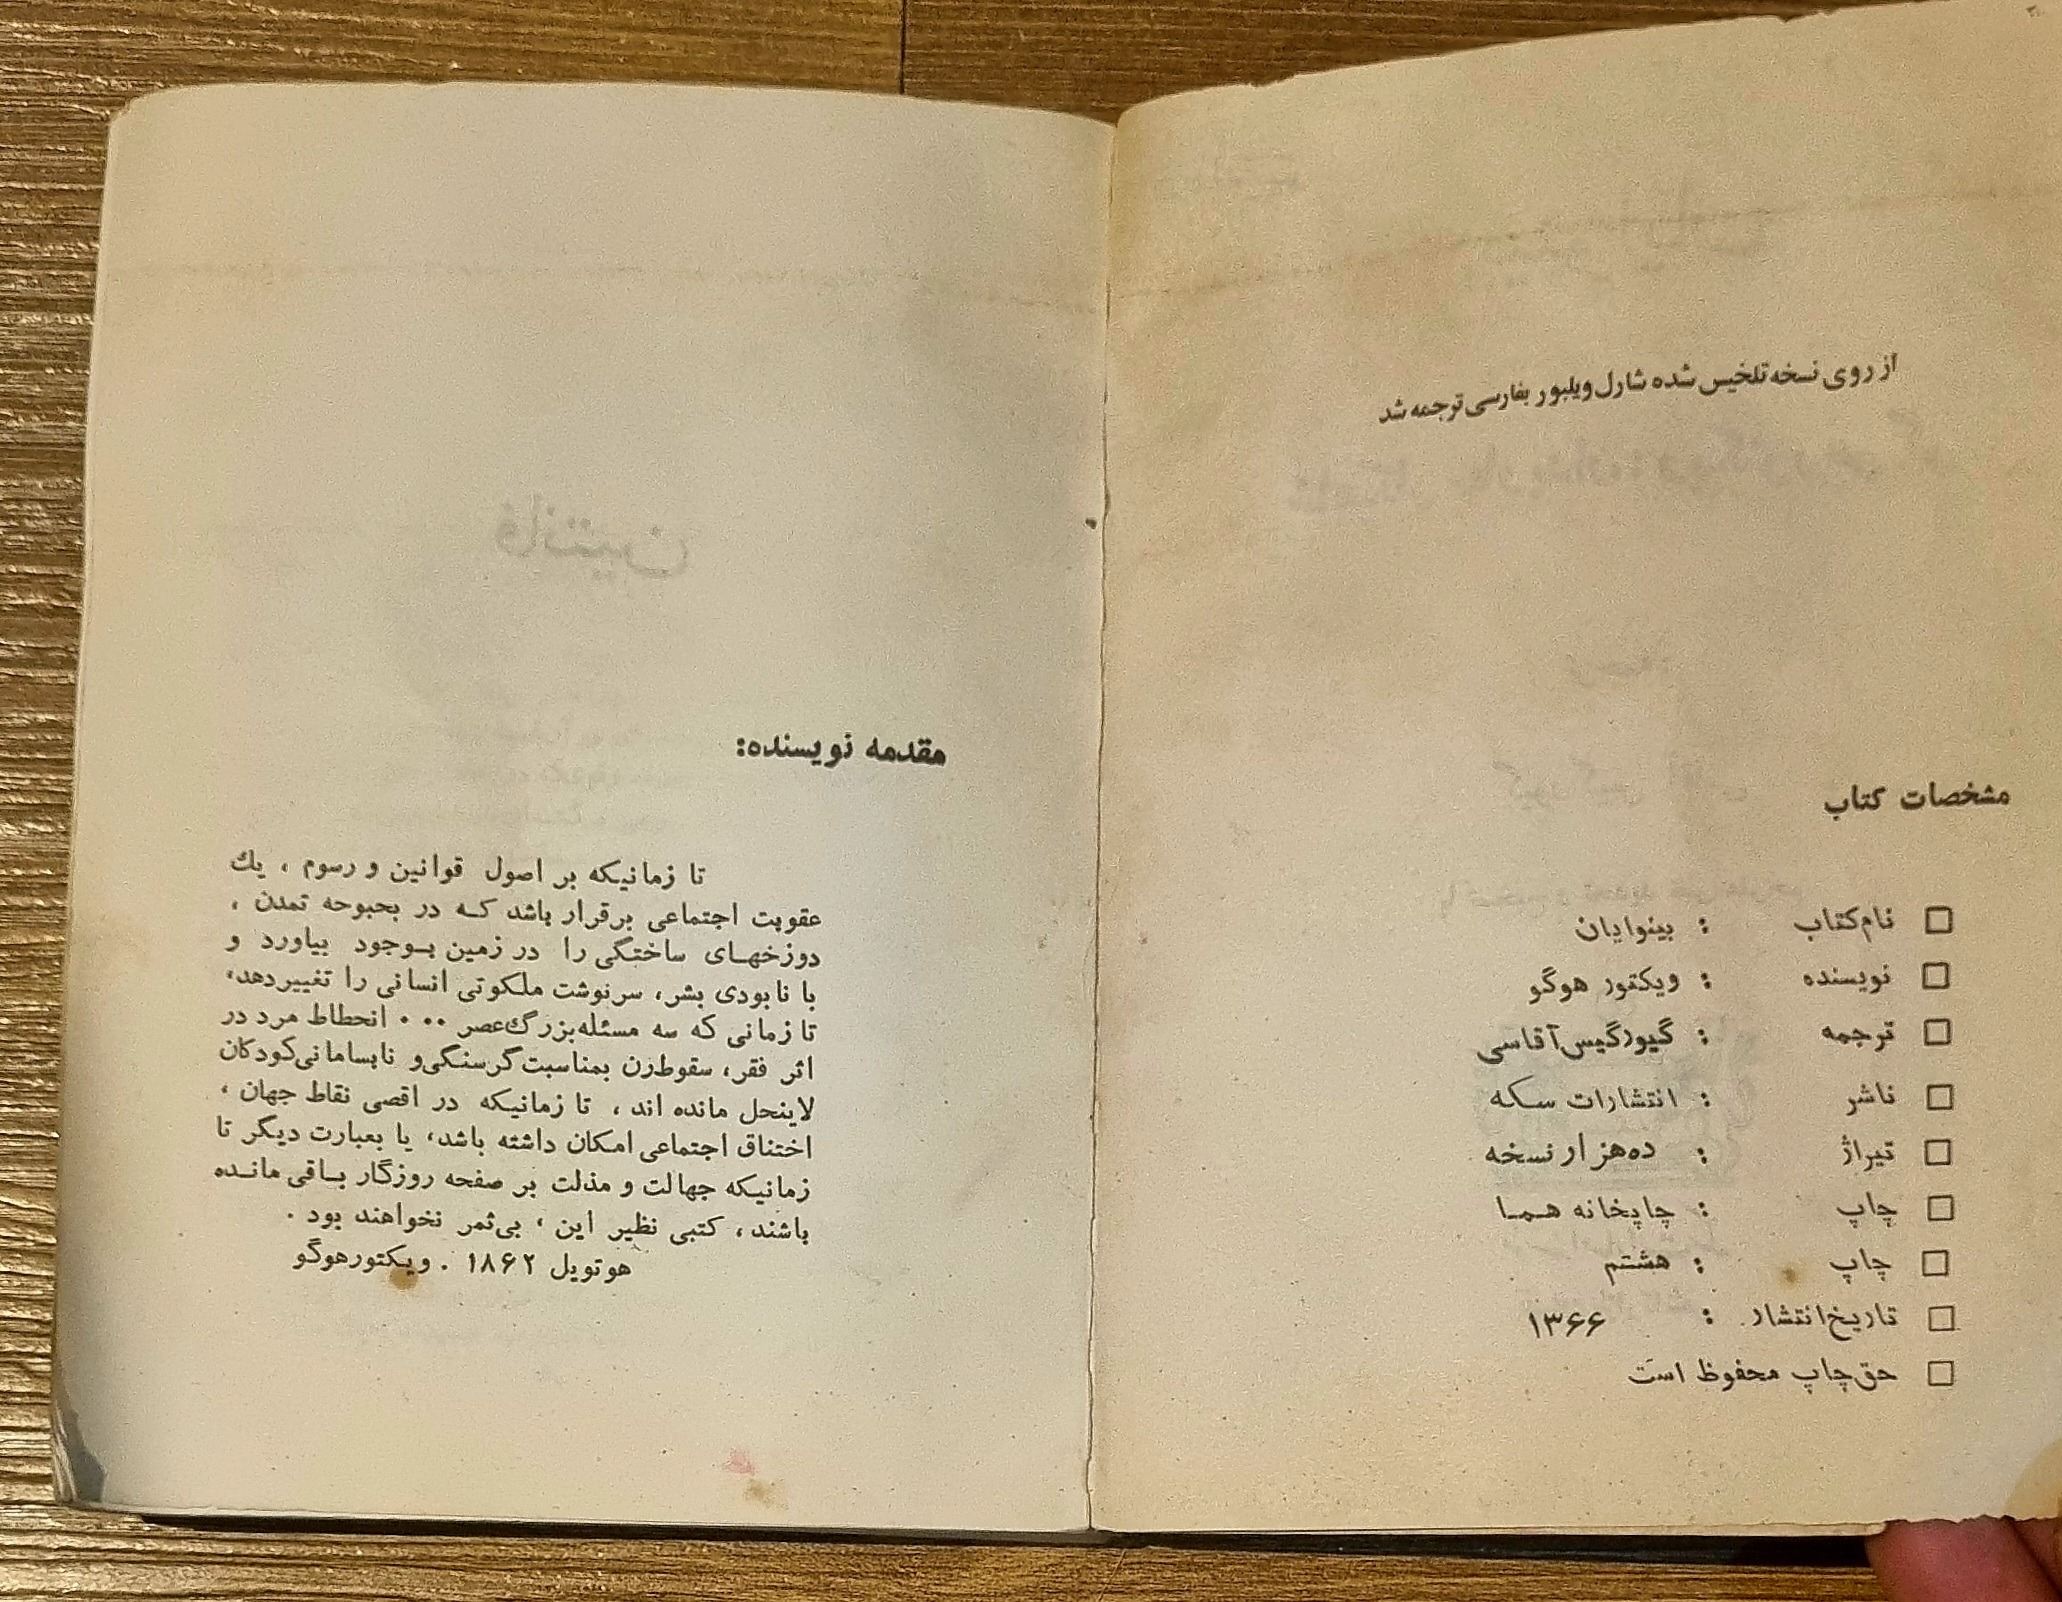 از روی نسخه تلخیس شده شارل ویلبور بفارسی ترجمه شد
مشخصات کتاب
□ نام کتاب : بینوایان
□ نویسنده : ویکتور هوگو
□ ترجمه : گیورگیس آقاسی
□ ناشر : انتشارات سکه
□ تیراژ : ده هزار نسخه
□ چاپ : چاپخانه هما
□ چاپ : هشتم
□ تاریخ انتشار : ۱۳۶۶
□ حق چاپ محفوظ است
مقدمه نویسنده:
تا زمانیکه بر اصول قوانین و رسوم ، یك
عقوبت اجتماعی برقرار باشد که در بحبوحه تمدن ،
دوزخهای ساختگی را در زمین بوجود بیاورد و
با نابودی بشر، سرنوشت ملکوتی انسانی را تغییر دهد،
تا زمانی که سه مسئله بزرگ عصر ۰۰۰ انحطاط مرد در
اثر فقر، سقوط زن بمناسبت گرسنگی و نابسامانی کودکان
لاینحل مانده اند ، تا زمانیکه در اقصی نقاط جهان ،
اختناق اجتماعی امکان داشته باشد، یا بعبارت دیگر تا
زمانیکه جهالت و مذلت بر صفحه روزگار باقی مانده
باشند ، کتبی نظیر این ، بی‌ثمر نخواهند بود .
هوتویل ۱۸۶۲ . ویکتور هوگو
فانتین